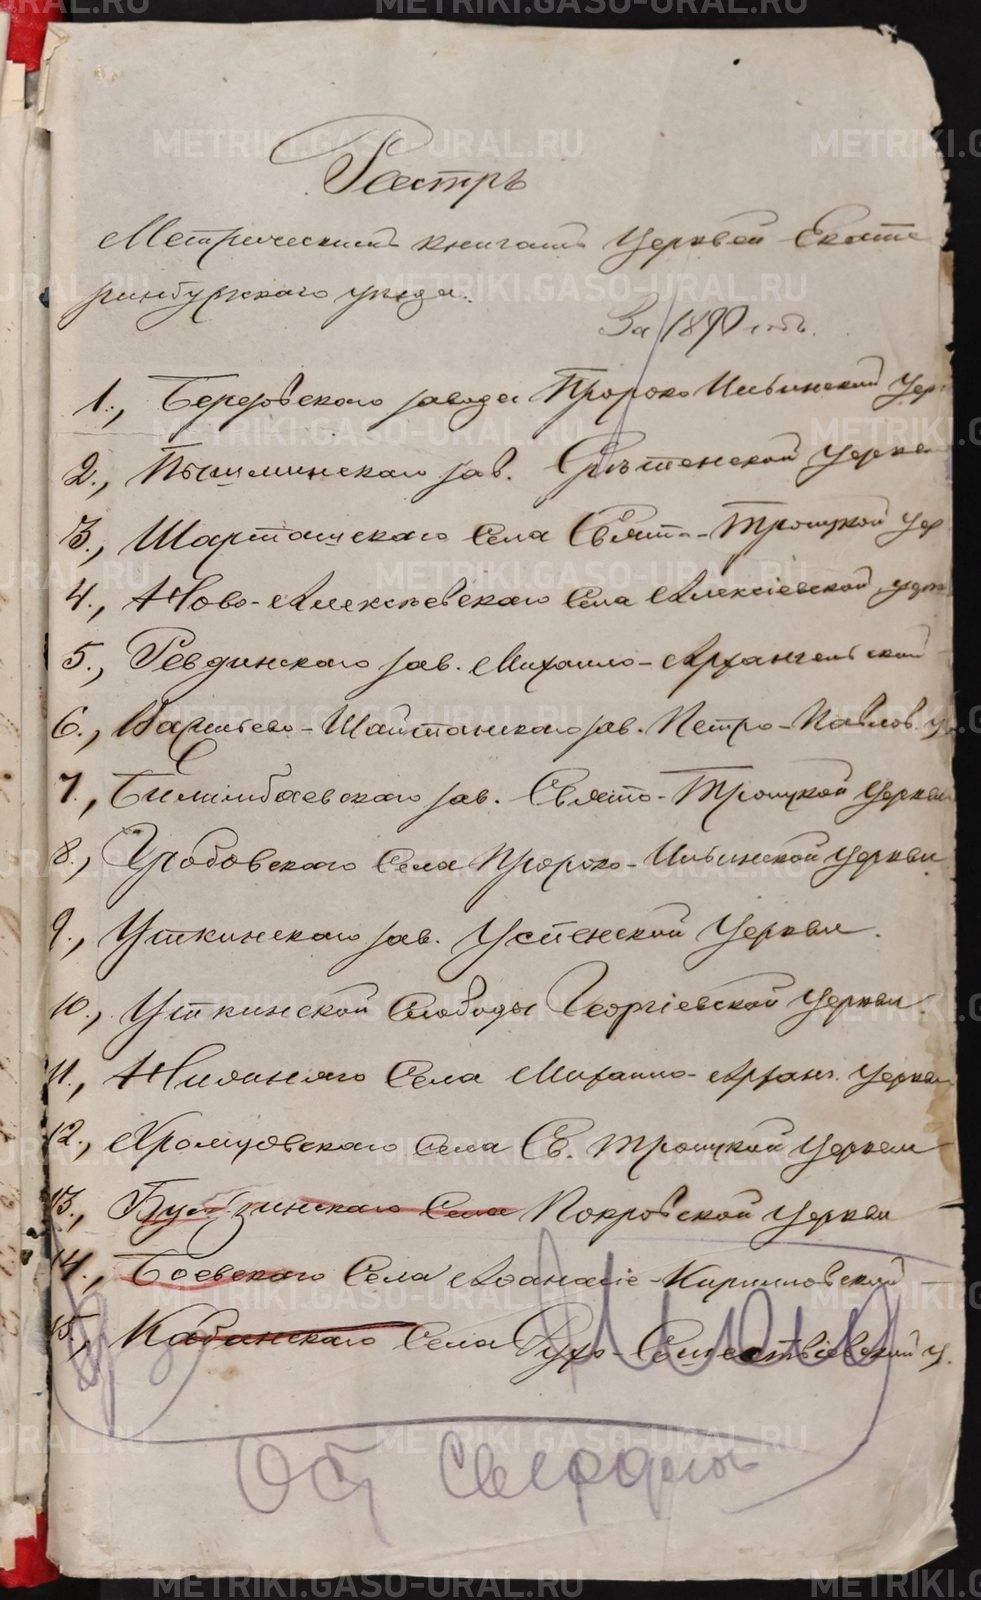 Реестръ
Метрическимъ книгамъ Церквей Екате
ринбургскаго уѣзда.
За 1890 годъ.
1., Березовскаго завода Пророко Ильинской Цер
2., Пышминскаго зав. Срѣтенской Церкв
3., Шарташскаго Села Свято-Троицкой Цер
4., Ново-Алексѣевскаго Села Алексіевской церк
5., Ревдинскаго зав. Михаило-Архангельской
6., Васильево-Шайтанскаго зав. Петро-Павлов. ц
7., Билимбаевскаго зав. Свято-Троицкой Церкви
8., Гробовскаго Села Пророко-Ильинской Церкви
9., Уткинскаго зав. Успенской Церкви.
10., Уткинской Слободы Георгіевской Церкви.
11., Села Михаило-Архан. Церкви
12., Кромцовскаго Села Св. Троицкой Церкви
13., Села Покровской Церкви
14., Боевскаго Села Аѳанасіе-Кирилловской
15., Кабанскаго Села Духо-Сошествіевской ц.